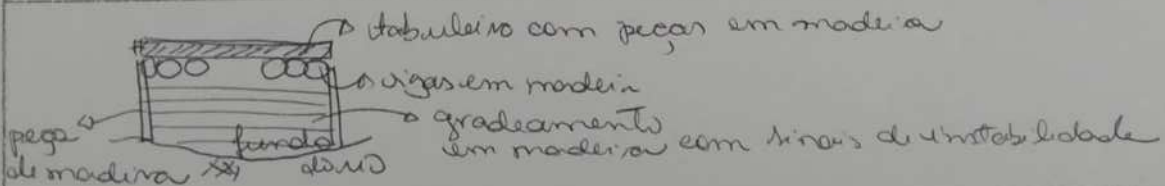 tabuleiro com peças em madeira
vigas em madeir
gradeamento
em madeira com sinais de instabilidade
peça
de madeira
fundo
do rio